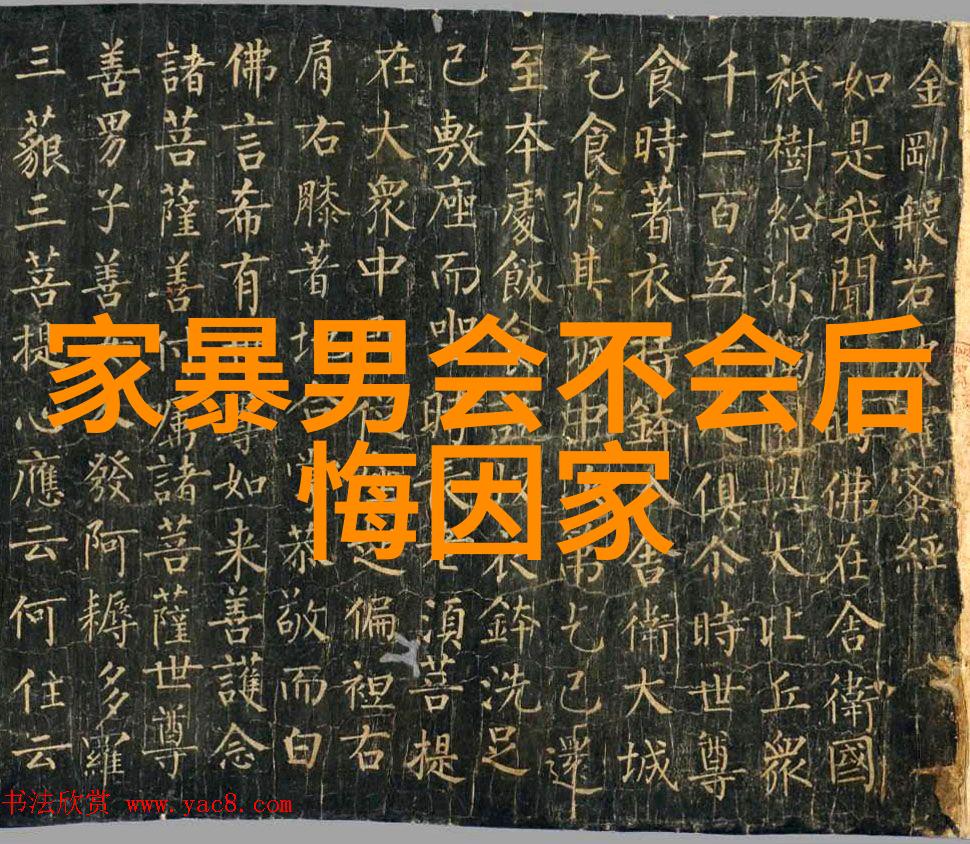 家暴男会不会后
悔因家
金剛般若波羅蜜經
如是我聞時佛在舍衛國
祇樹給孤獨園與大比丘衆
千二百五人俱尒時世尊
食時著衣持鉢入舍衛大城
乞食於其城中第乞已還
至本處飯食衣鉢洗足
已敷座而時長老須菩提
在大衆中偏袒右
肩右膝著地合恭敬而白
佛言希有尊如来善護念
諸菩薩善付属諸菩薩世尊
善男子善人發阿耨多羅
三藐三菩提心應云何住云
书法欣赏 www.yac8.com